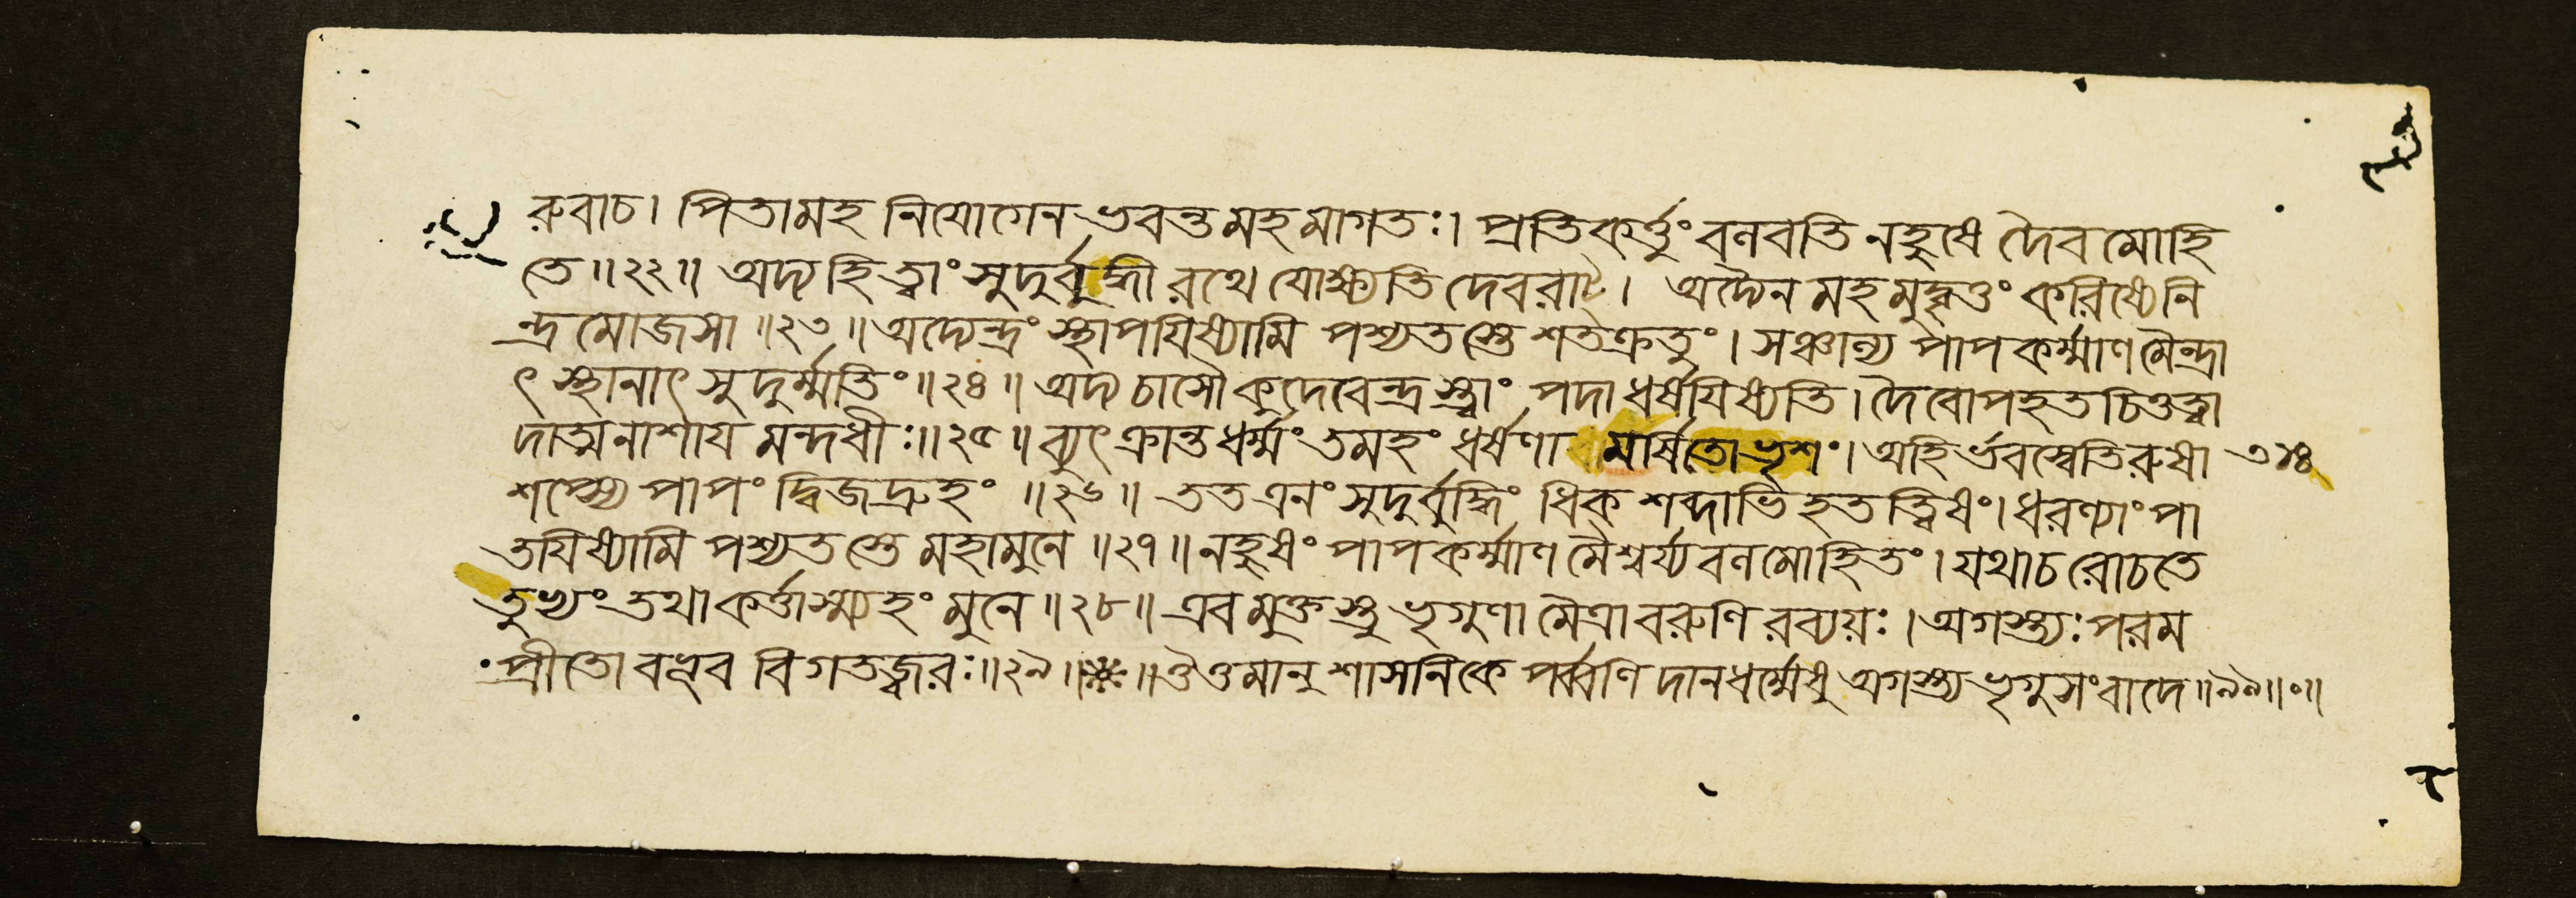 রুবাচ। পিতামহ নিযোগেন ভবন্তমহমাগতঃ। প্রতিকর্ত্তুং বলবতি নহুষে দৈবমোহি
তে॥২২॥ অদ্য হি ত্বাং সুদুর্বুদ্ধী রথে যোক্ষ্যতি দেবরাট্। অদ্যৈনমহমুদ্বৃত্তং করিষ্যেনি
ন্দ্রমোজসা॥২৩॥ অদ্যেন্দ্রং স্থাপযিষ্যামি পশ্যতস্তে শতক্রতুং। সঞ্চাল্য পাপকর্ম্মাণমৈন্দ্রা
ৎ স্থানাৎ সুদুর্ম্মতিং॥২৪॥ অদ্য চাসৌ কুদেবেন্দ্রস্ত্বাং পদা ধর্ষযিষ্যতি। দৈবোপহতচিত্তত্বা
দাত্মনাশায মন্দধীঃ॥২৫॥ ব্যুৎক্রান্তধর্ম্মং তমহং ধর্ষণামর্ষিতো ভৃশং। অহির্ভবস্বেতি রুষা ৩১৪
শপ্স্যে পাপং দ্বিজদ্রুহং॥২৬॥ তত এনং সুদুর্বুদ্ধিং ধিক শব্দাভিহতত্বিষং। ধরণ্যাং পা
তযিষ্যামি পশ্যতস্তে মহামুনে॥২৭॥ নহুষং পাপকর্ম্মাণমৈশ্বর্য্যবলমোহিতং। যথা চ রোচতে
তুভ্যং তথা কর্ত্তাস্ম্যহং মুনে॥২৮॥ এবমুক্তস্তু ভৃগুণা মৈত্রাবরুণিরব্যয়ঃ। অগস্ত্যঃ পরম
প্রীতো বভূব বিগতজ্বরঃ॥২৯॥ ॥ ঔঁত্তমানুশাসনিকে পর্ব্বণি দানধর্ম্মেষু অগস্ত্য ভৃগুসংবাদে॥৯৯॥০॥